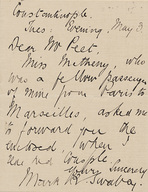 Constantinople.
Tues. Evening, May 3
Dear Mr Peet,
Miss Metheny, who
was a fellow passenger
of mine from Paris to
Marseilles, asked me
to forward you the
enclosed, when I
reached Constple.
Yours Sincerely
Swabey.